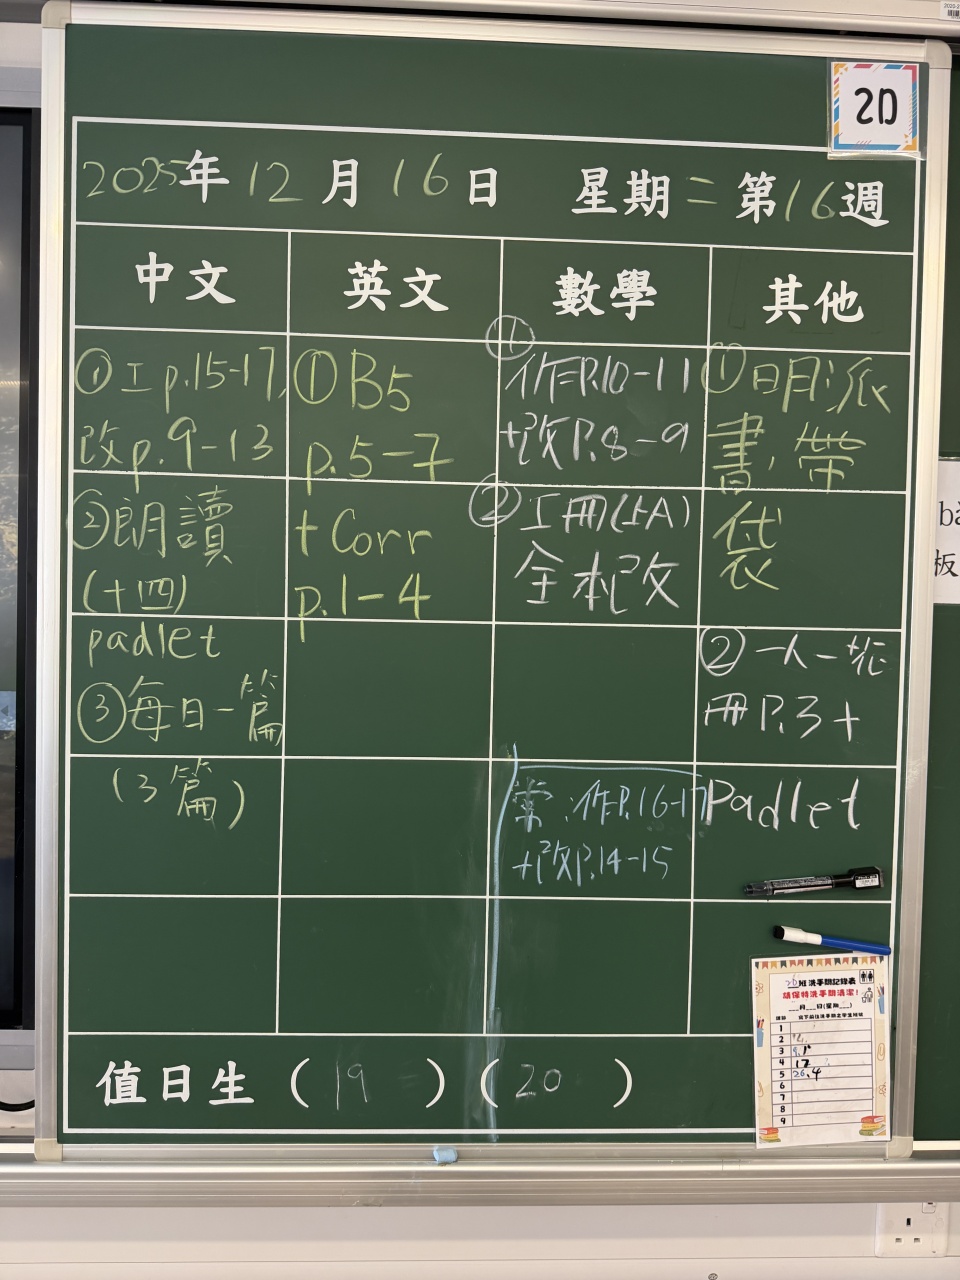 2D
2025年12月16日 星期二第16週
中文
英文
數學
其他
①工p.15-17,
改p.9-13
②朗讀
(十四)
padlet
③每日一篇
(3篇)
①B5
p.5-7
+Corr
p.1-4
①
作=P.10-11
+改P.8-9
②工冊(上A)
全本改
常:作P.16-17
+改P.14-15
①明派
書,帶
袋
②一人一花
冊P.3+
Padlet
值日生(19)(20)
2D班洗手間記錄表
請保持洗手間清潔!
月 日(星期 )
1
2
3
4 12
5 26,4
6
7
8
9
板